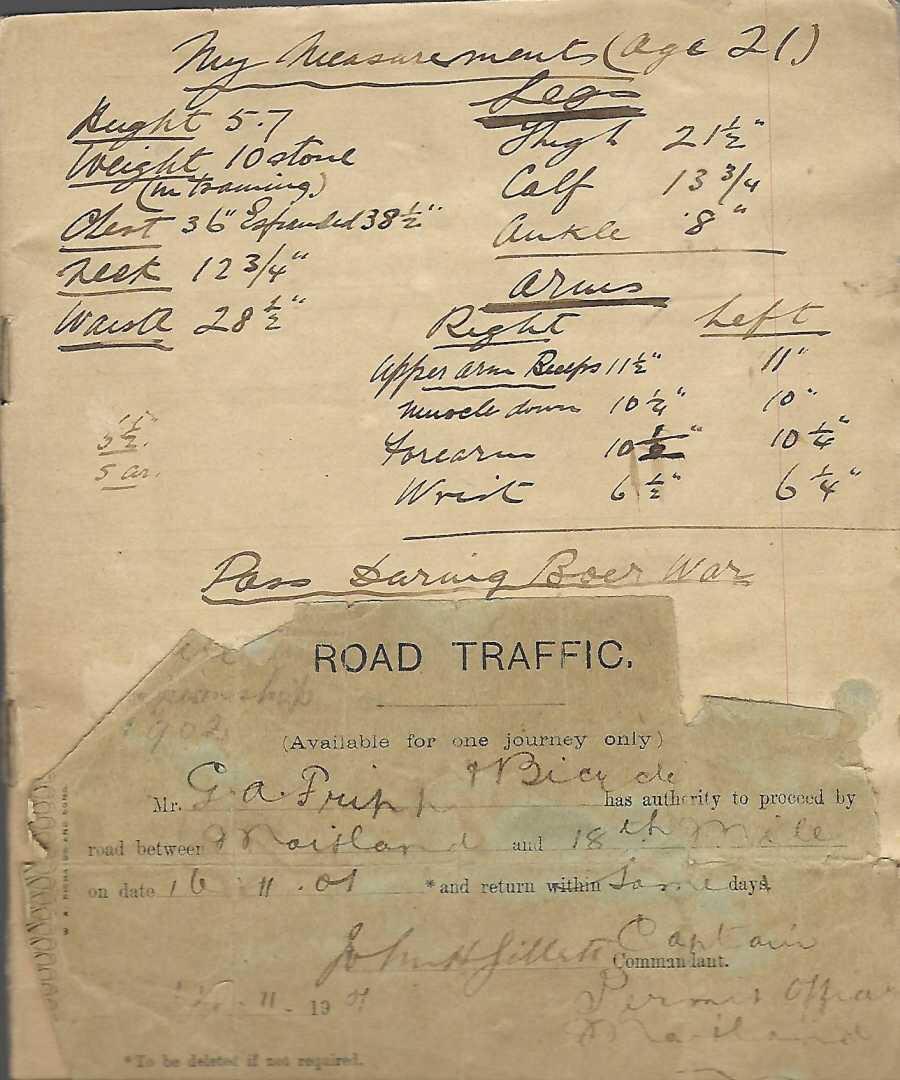 My Measurements (age 21)
Height 5.7
Weight 10 stone
(in training)
Chest 36" Expanded 38½"
Neck 12 3/4"
Waist 28½"
Legs
Thigh 21½"
Calf 13 3/4
Ankle 8"
Arms
Right Left
Upper arm Biceps 11½" 11"
Muscle down 10¼" 10"
Forearm 10½" 10¼"
Wrist 6½" 6¼"
Pass During Boer War
ROAD TRAFFIC.
1902
(Available for one journey only)
Mr. G. A. Fripp & Bicycle has authority to proceed by
road between Maitland and 18th Mile
on date 16.11.01 *and return within same days.
John H Gillett Captain
Commandant.
11 - 1901
Permit Officer
Maitland
*To be deleted if not required.